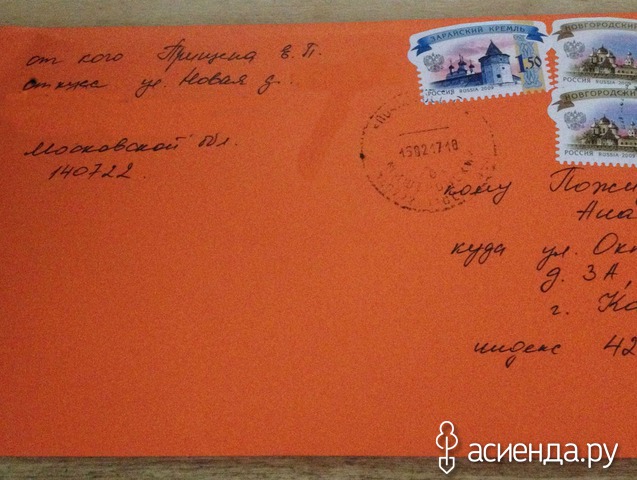 от кого Прицепа Е. П.
откуда ул. Новая д.
Московской обл.
140722.
ЗАРАЙСКИЙ КРЕМЛЬ
1,50
РОССИЯ RUSSIA 2009
НОВГОРОДСКИЙ
РОССИЯ RUSSIA 2009
НОВГОРОДСКИЙ
РОССИЯ RUSSIA 2009
15021718
кому
куда ул.
д. 3А,
г.
индекс 42
асиенда.ру